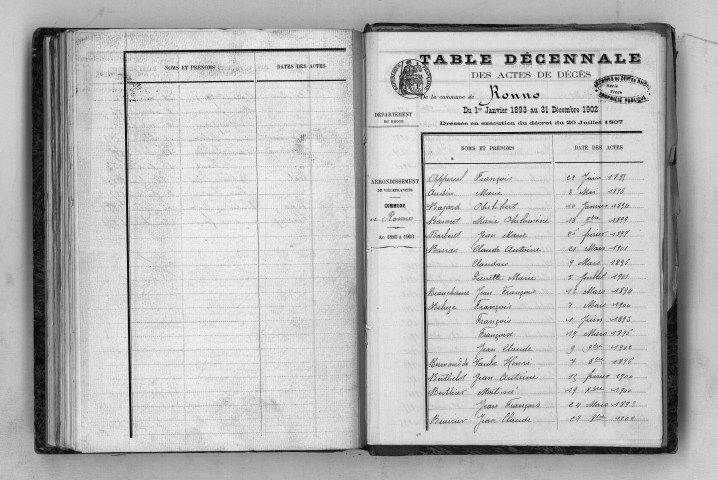 NOMS ET PRÉNOMS DATES DES ACTES
TABLE DÉCENNALE
DES ACTES DE DÉCÈS
De la commune de Ronno
Du 1er Janvier 1893 au 31 Décembre 1902
Dressée en exécution du décret du 20 Juillet 1807
DÉPARTEMENT
DU RHONE
ARRONDISSEMENT
DE VILLEFRANCHE
COMMUNE
de Ronno
An 1893 à 1903
PROPRIÉTÉ PUBLIQUE
NOMS ET PRÉNOMS DATE DES ACTES
François 22 Juin
Audin Marie 3 Mai 1898
Bajard 10 Janvier 1894
Marie Philomène 18 9bre 1899
Barberet Jean Marie 26 février
Barras Claude Antoine 21 Mars 1901
Claudius 9 Mars 1896
Pierrette Marie 5 Juillet 1901
Beauchaine Jean François 12 Mars 1894
Beluze François 7 Mars 1900
François 1 Juin 1893
Françoise 19 Mars 1896
Jean Claude 9 9bre 1902
Henri 7 8bre 1896
Berthelot Jean Antoine 15 février
Berthier 19 Xbre 1900
Jean François 20 Mars 1893
Jean Claude 23 8bre